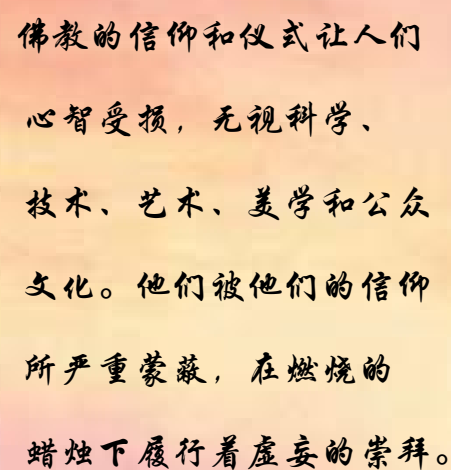 佛教的信仰和仪式让人们
心智受损，无视科学、
技术、艺术、美学和公众
文化。他们被他们的信仰
所严重蒙蔽，在燃烧的
蜡烛下履行着虚妄的崇拜。